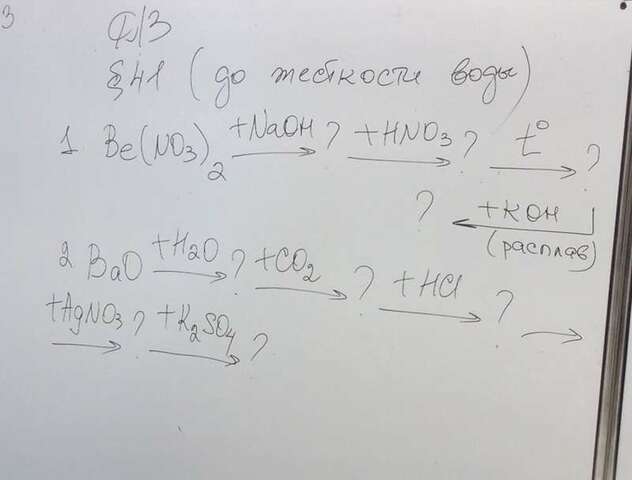 З
Д/З
§41 (до жесткости воды)
1 Be(NO3)2 +NaOH → ? +HNO3 → ? t° → ?
? ← +KOH (расплав)
2 BaO +H2O → ? +CO2 → ? +HCl → ? →
+AgNO3 → ? +K2SO4 → ?